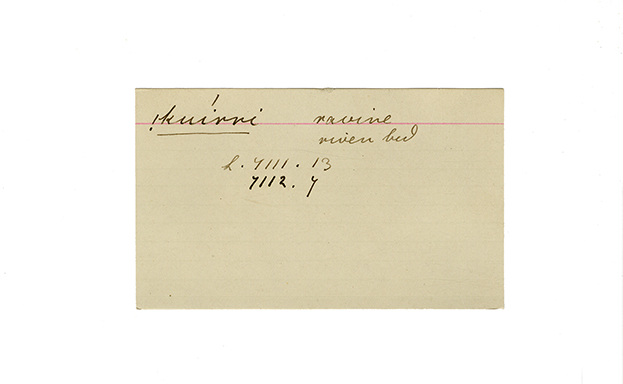 !kuírri ravine
river bed
L. 7111. 13
7112. 7